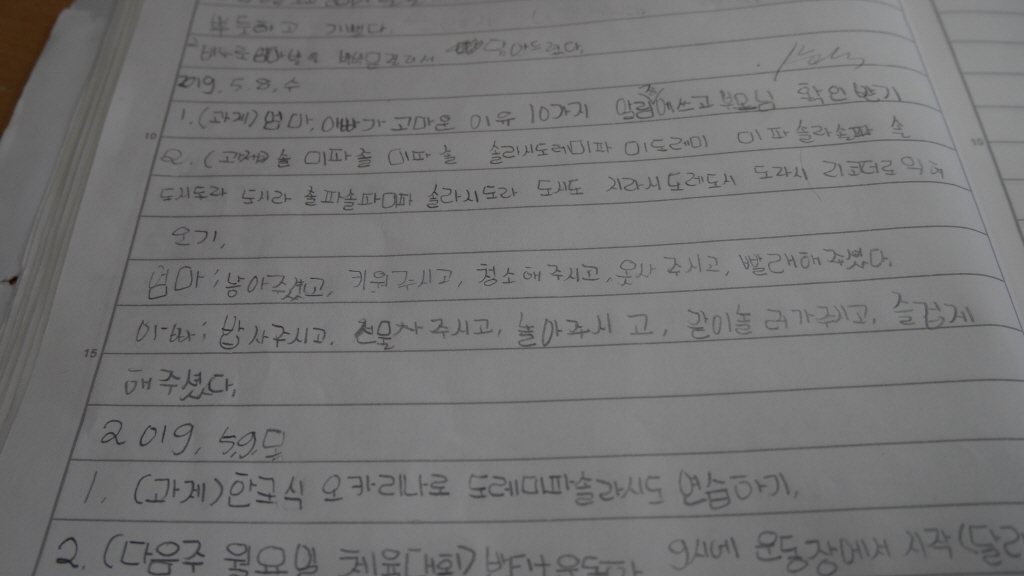 뿌듯하고 기뻤다.
닦아드렸다.
2019. 5. 8. 수
1. (과제) 엄마, 아빠가 고마운 이유 10가지 알림장에쓰고 부모님 확인받기
2. (과제) 솔 미파솔 미파솔 솔라시도레미파 미도레미 미파솔라솔파 솔
도시도라 도시라 솔파솔파미파 솔라시도라 도시도 시라시도레도시 도라시 리코더로 익혀
오기.
엄마; 낳아주셨고, 키워주시고, 청소해주시고, 옷사 주시고, 빨래해주셨다.
아빠; 밥사주시고, 선물사주시고, 놀아주시 고, 같이놀 러가주시고, 즐겁게
해주셨다.
2019. 5.9.목
1. (과제) 한국식 오카리나로 도레미파솔라시도 연습하기.
2. (다음주 월요일 체육대회) 9시에 운동장에서 시작(달리
10
15
10